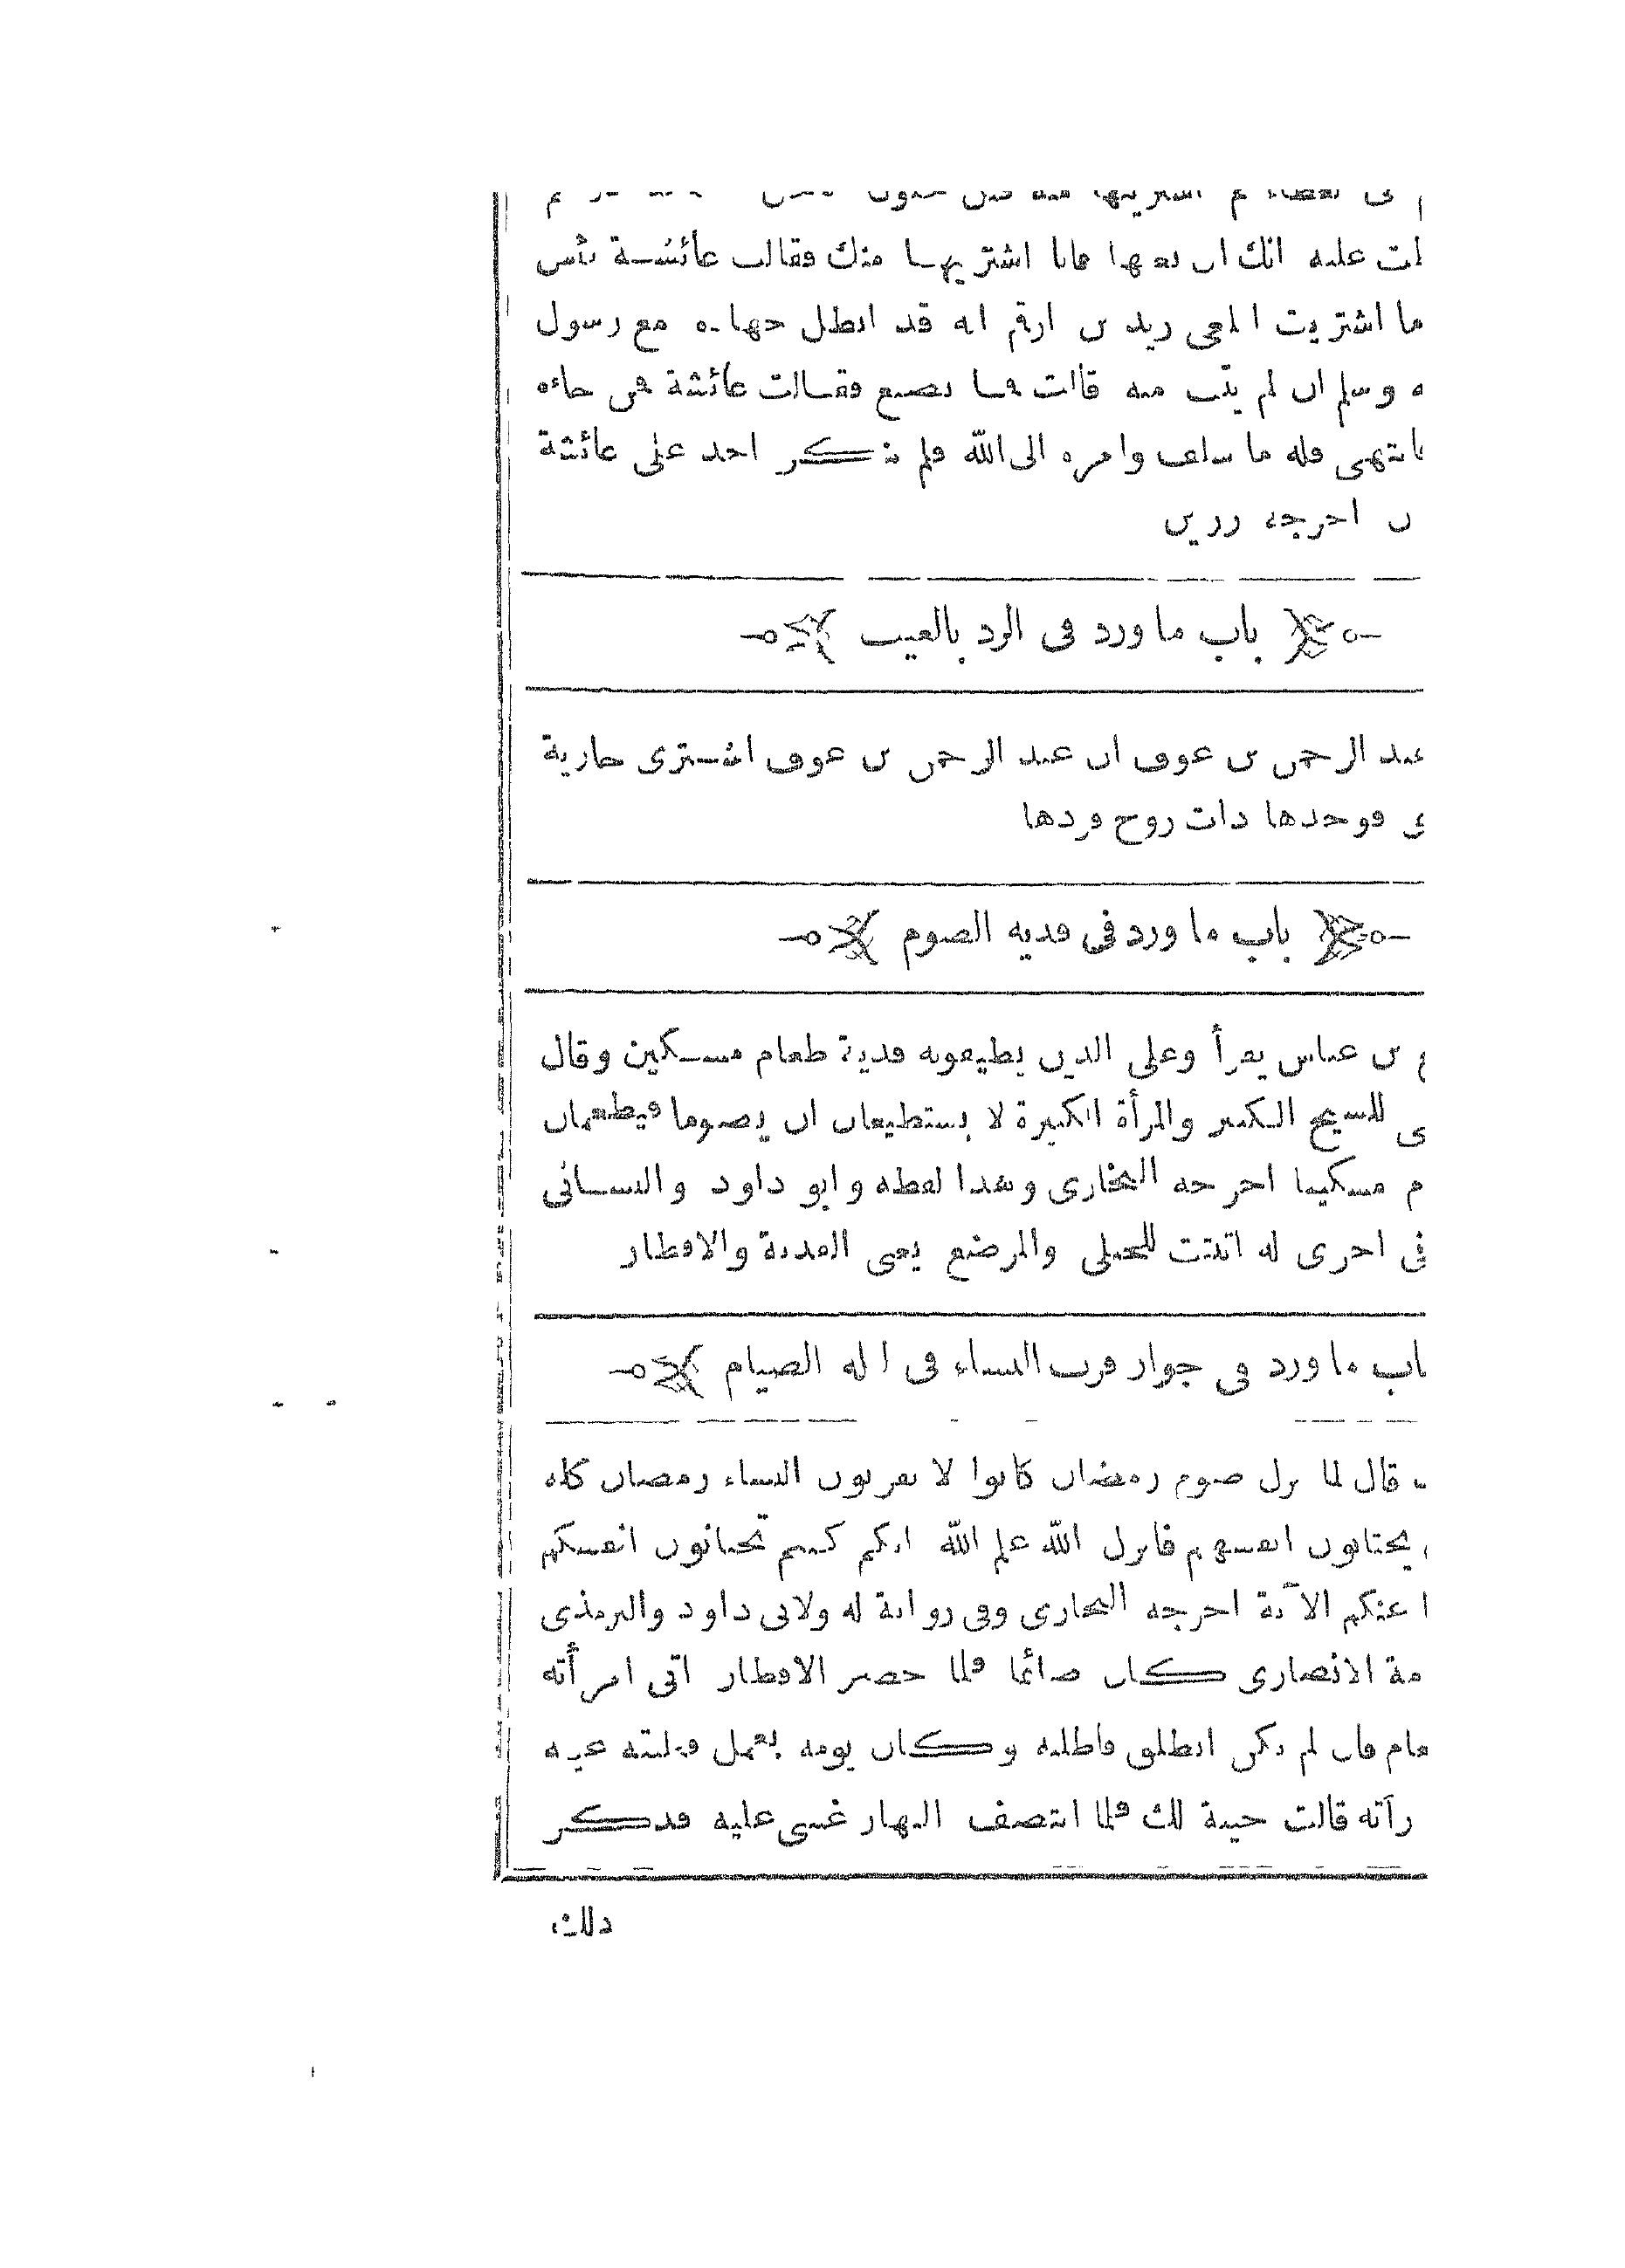 اشتريتها منه قبل
عليه انك ان بعتها فانا اشتريها منك فقالت عائشة بئس
ما اشتريت ابلغى زيد بن ارقم انه قد ابطل جهاده مع رسول
ه وسلم ان لم يتب منه قالت فما نصنع فقالت عائشة فمن جاءه
فانتهى فله ما سلف وامره الى الله فلم ينكر احد على عائشة
اخرجه رزين
باب ما ورد فى الرد بالعيب
عبد الرحمن بن عوف ان عبد الرحمن بن عوف اشترى جارية
فوجدها ذات زوج فردها
باب ما ورد فى فدية الصوم
بن عباس يقرأ وعلى الذين يطيقونه فدية طعام مسكين وقال
للشيخ الكبير والمرأة الكبيرة لا يستطيعان ان يصوما فيطعمان
م مسكينا اخرجه البخارى وهذا لفظه وابو داود والنسائى
فى اخرى له اثبتت للحبلى والمرضع يعنى الفدية والافطار
باب ما ورد فى جواز قرب النساء فى ليلة الصيام
قال لما نزل صوم رمضان كانوا لا يقربون النساء رمضان كله
يختانون انفسهم فانزل الله علم الله انكم كنتم تختانون انفسكم
ا عنكم الآية اخرجه البخارى وفى رواية له ولابى داود والترمذى
مة الانصارى كان صائما فلما حضر الافطار اتى امرأته
عام قال لم يكن انطلق فاطلبه وكان يومه يعمل فغلبته عينه
رأته قالت خيبة لك فلما انتصف النهار غشى عليه فذكر
ذلك